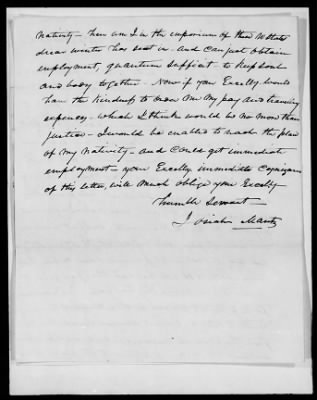 nativity - here am I in the imporium of these N States
drear winter has set in - and can just obtain
employment, quantum sufficit - to keep soul
and body together - Now if your Excelly would
have the kindness to order me my pay and traveling
expences - which I think would be no more than
justice - I would be enabled to reach the place
of my nativity - and could get immediate
employment - your Excelly immediate Cognizance
of this letter, will much oblige your Excelly
humble Servant -
Josiah